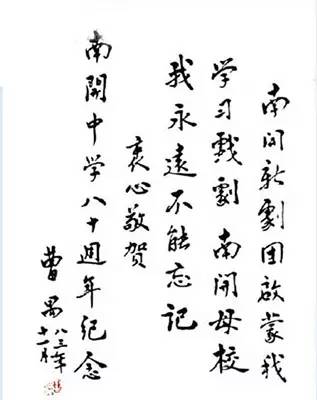 南開新劇团啟蒙我
学习戲劇南開母校
我永遠不能忘记
衷心敬贺
南開中学八十週年纪念
曹禺
八三年
十一月